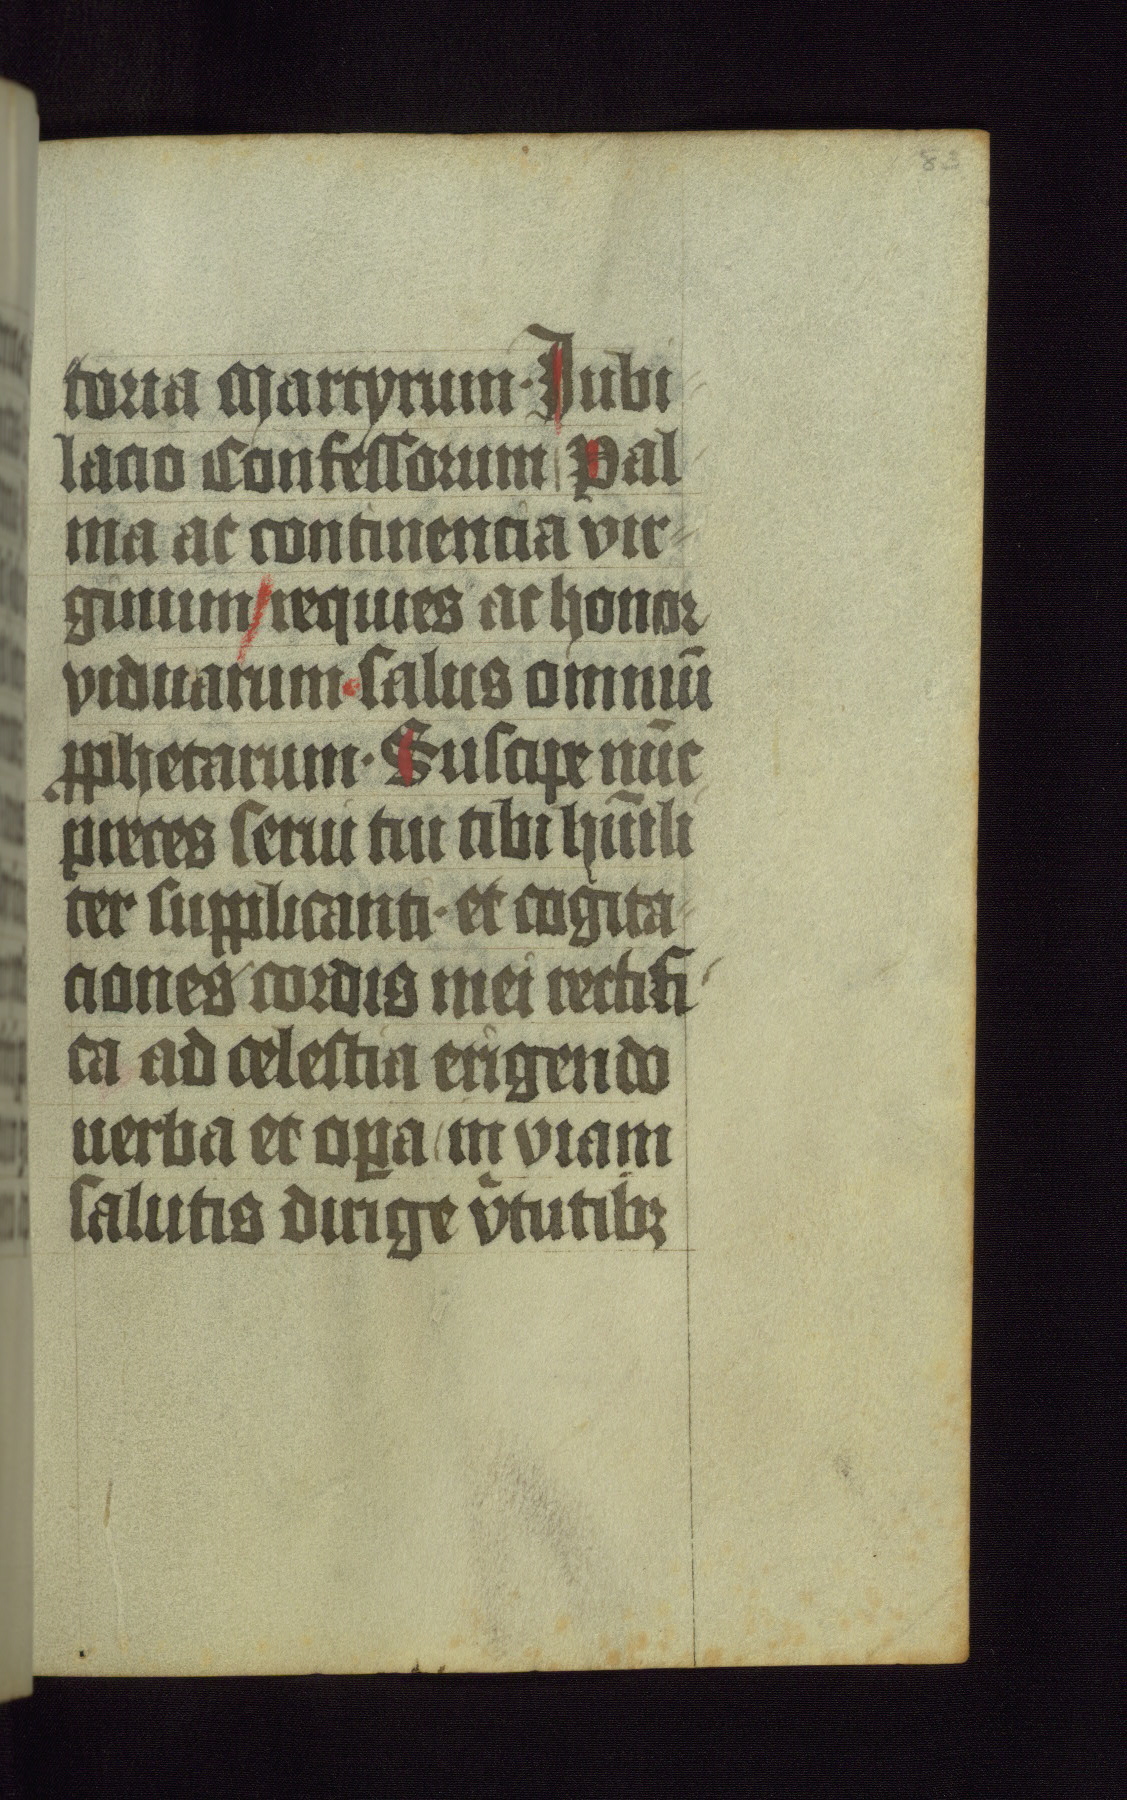 83
toria Martyrum· Jubi
lacio Confessorum Pal
ma ac continencia vir-
ginum/ requies ac honor
viduarum· salus omniū
ꝓphetarum· Suscipe nūc
preces serui tui tibi hūili
ter supplicanti· et cogita-
ciones cordis mei rectifi
ca ad celestia erigendo
uerba et oꝑa in viam
salutis dirige v̄tutibꝫ